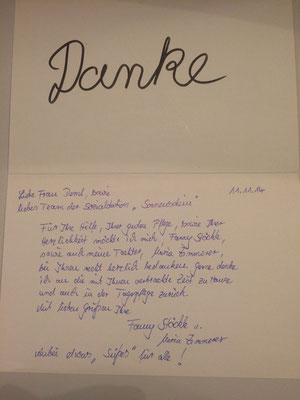 Danke
11.11.14
Liebe Frau Deml, sowie
liebes Team der Sozialstation „Sonnenschein"
Für Ihre Hilfe, Ihrer guten Pflege, sowie Ihrer
Herzlichkeit möchte ich mich, Fanny Stöckle,
sowie auch meine Tochter, Maria Zimmerer,
bei Ihnen recht herzlich bedanken. Gerne denke
ich an die mit Ihnen verbrachte Zeit zu Hause
und auch in der Tagespflege zurück.
Mit lieben Grüßen Ihre
Fanny Stöckle u.
Maria Zimmerer
„Süßes" für alle!